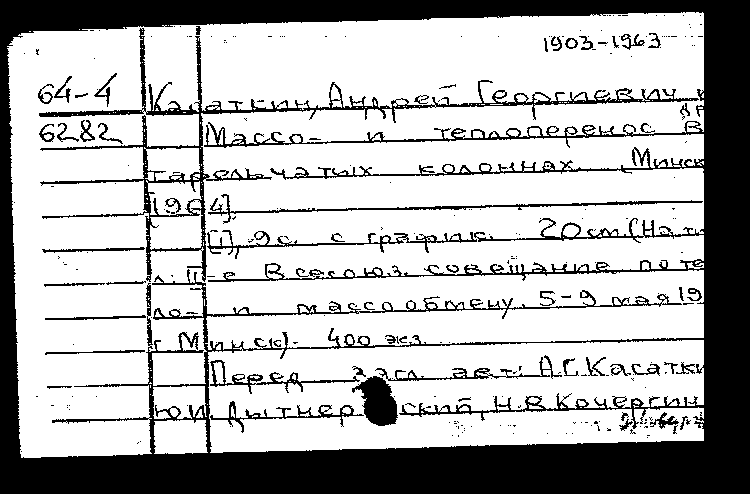 1903-1963
64-4 Касаткин, Андрей Георгиевич и
др
6282 Массо- и теплоперенос в
тарельчатых колоннах. [Минск
[1964].
[1], 9 с. с график. 20 см. (На т.
л.: II-е Всесоюз. совещание по те
ло- и массообмену. 5-9 мая 19
г. Минск). 400 экз.
Перед загл. авт.: А.Г. Касатки
Ю.И. Дытнер ский, Н.В. Кочергин